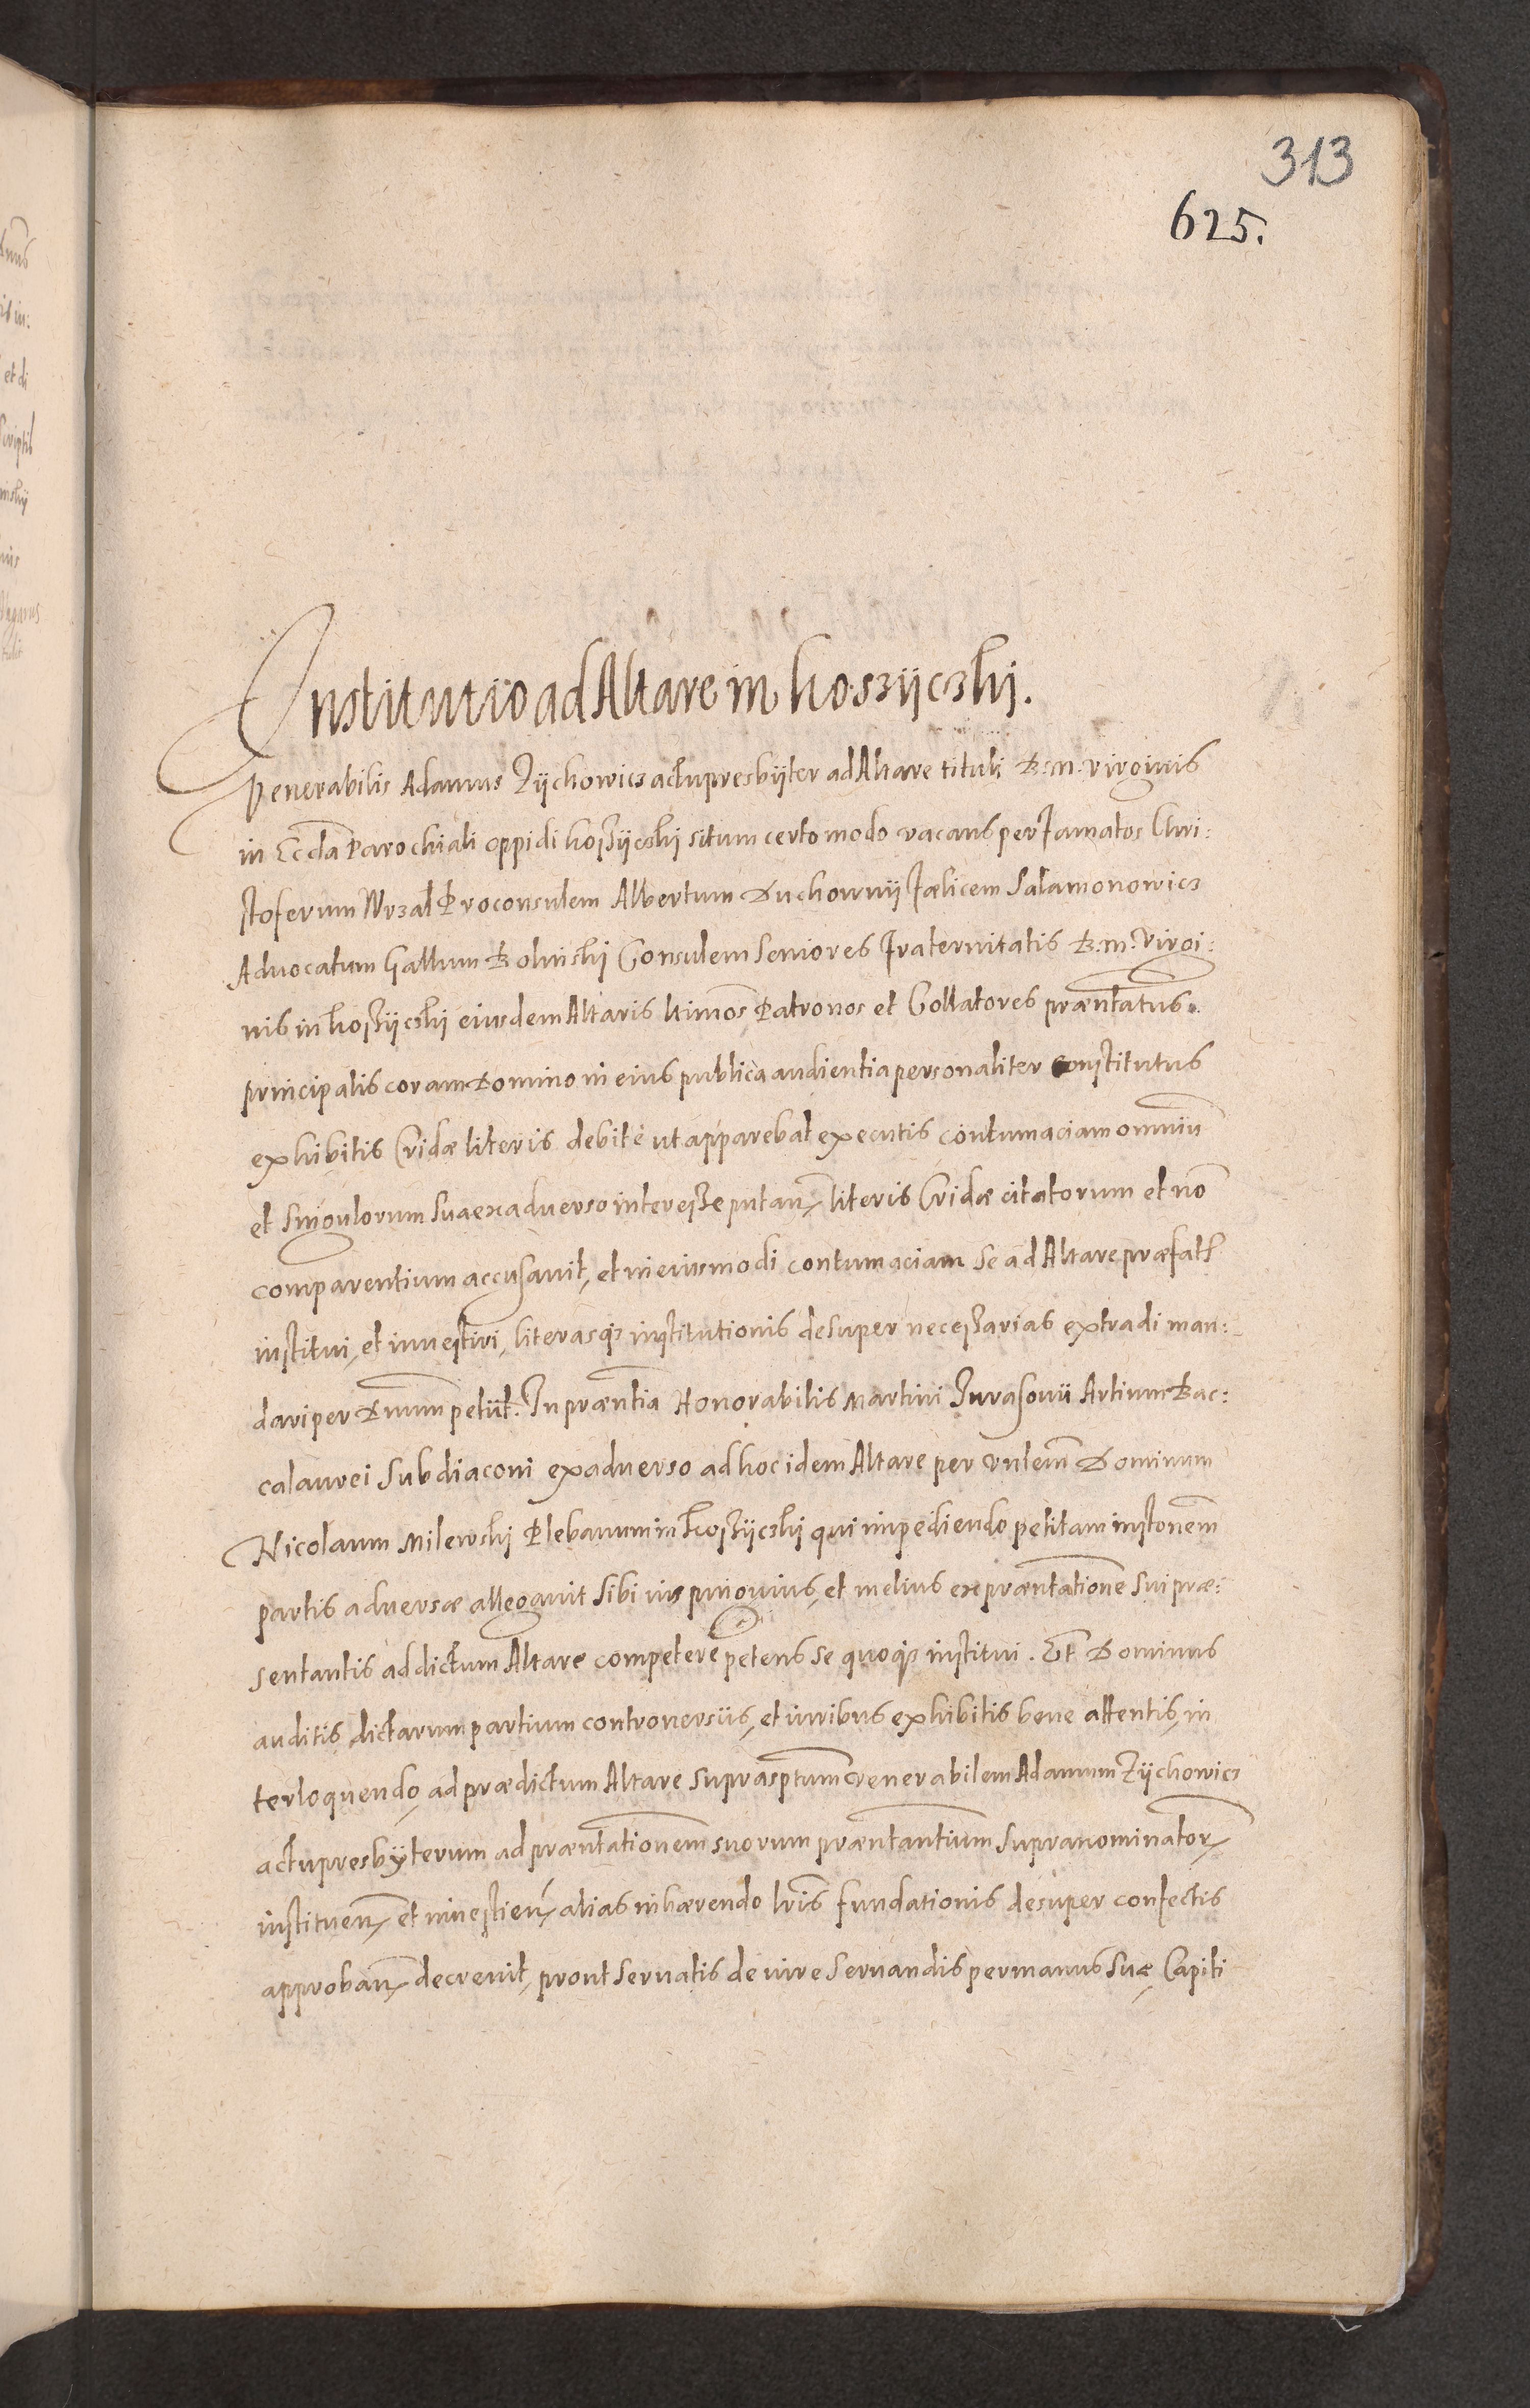 313
625.
Institutio ad Altare in koszijczki.
Venerabilis Adamus Zijchowicz actupresbijter ad Altare tituli B: M: virginis
in Eccla Parochiali oppidi koszijczki situm certo modo vacans per famatos Chri:
stoferum Wrzal Proconsulem Albertum Duchownij fælicem Salamonowicz
Advocatum Gallum Bolinski Consulem seniores fraternitatis B: M: Virgi:
nis in koszijczki eiusdem Altaris ltimos Patronos et Collatores præntatus.
principalis coram Domino in eius publica audientia personaliter constitutus
exhibitis Cridæ literis debite ut apparebat executis contumaciam omniu
et singulorum sua ex adverso interesse putan literis Cridæ citatorum et no
comparentium accusavit, et in eiusmodi contumaciam se ad Altare præfat
institui, et investiri, literasq institutionis desuper necessarias extradi man:
dari per Dnum petiit. In præntia Honorabilis Martini Jurasovii Artium Bac:
calaurei Subdiaconi ex adverso ad hoc idem Altare per vnlem Dominum
Nicolaum Milewski Plebanum in koszijczki qui impediendo petitam instonem
partis adversæ allegavit sibi ius pinguius, et melius ex præntatione sui præ:
sentantis ad dictum Altare competere petens se quoq institui. Et Dominus
auditis dictarum partium controversiis, et iuribus exhibitis bene attentis, in
terloquendo, ad prædictum Altare suprasptum venerabilem Adamum Zijchowicz
actupresbyterum ad præntationem suorum præntantium supranominator
instituen et investien alias inhærendo lris fundationis desuper confectis
approban decrevit, prout servatis de iure servandis per manus suæ Capiti